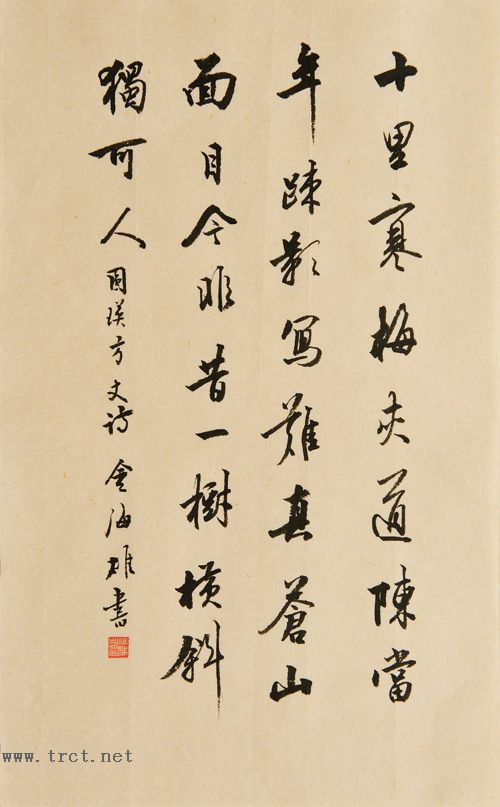 十里寒梅夾道陳當
年疎影寫難真蒼山
面目今非昔一樹横斜
獨可人 瑛方诗 金海雄書
www.trct.net